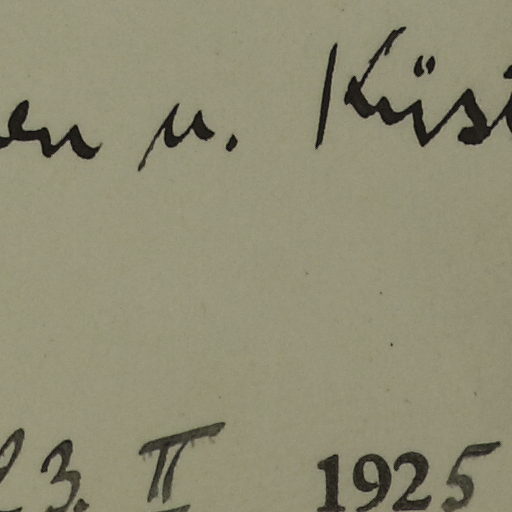 en u. Küst
23. II 1925